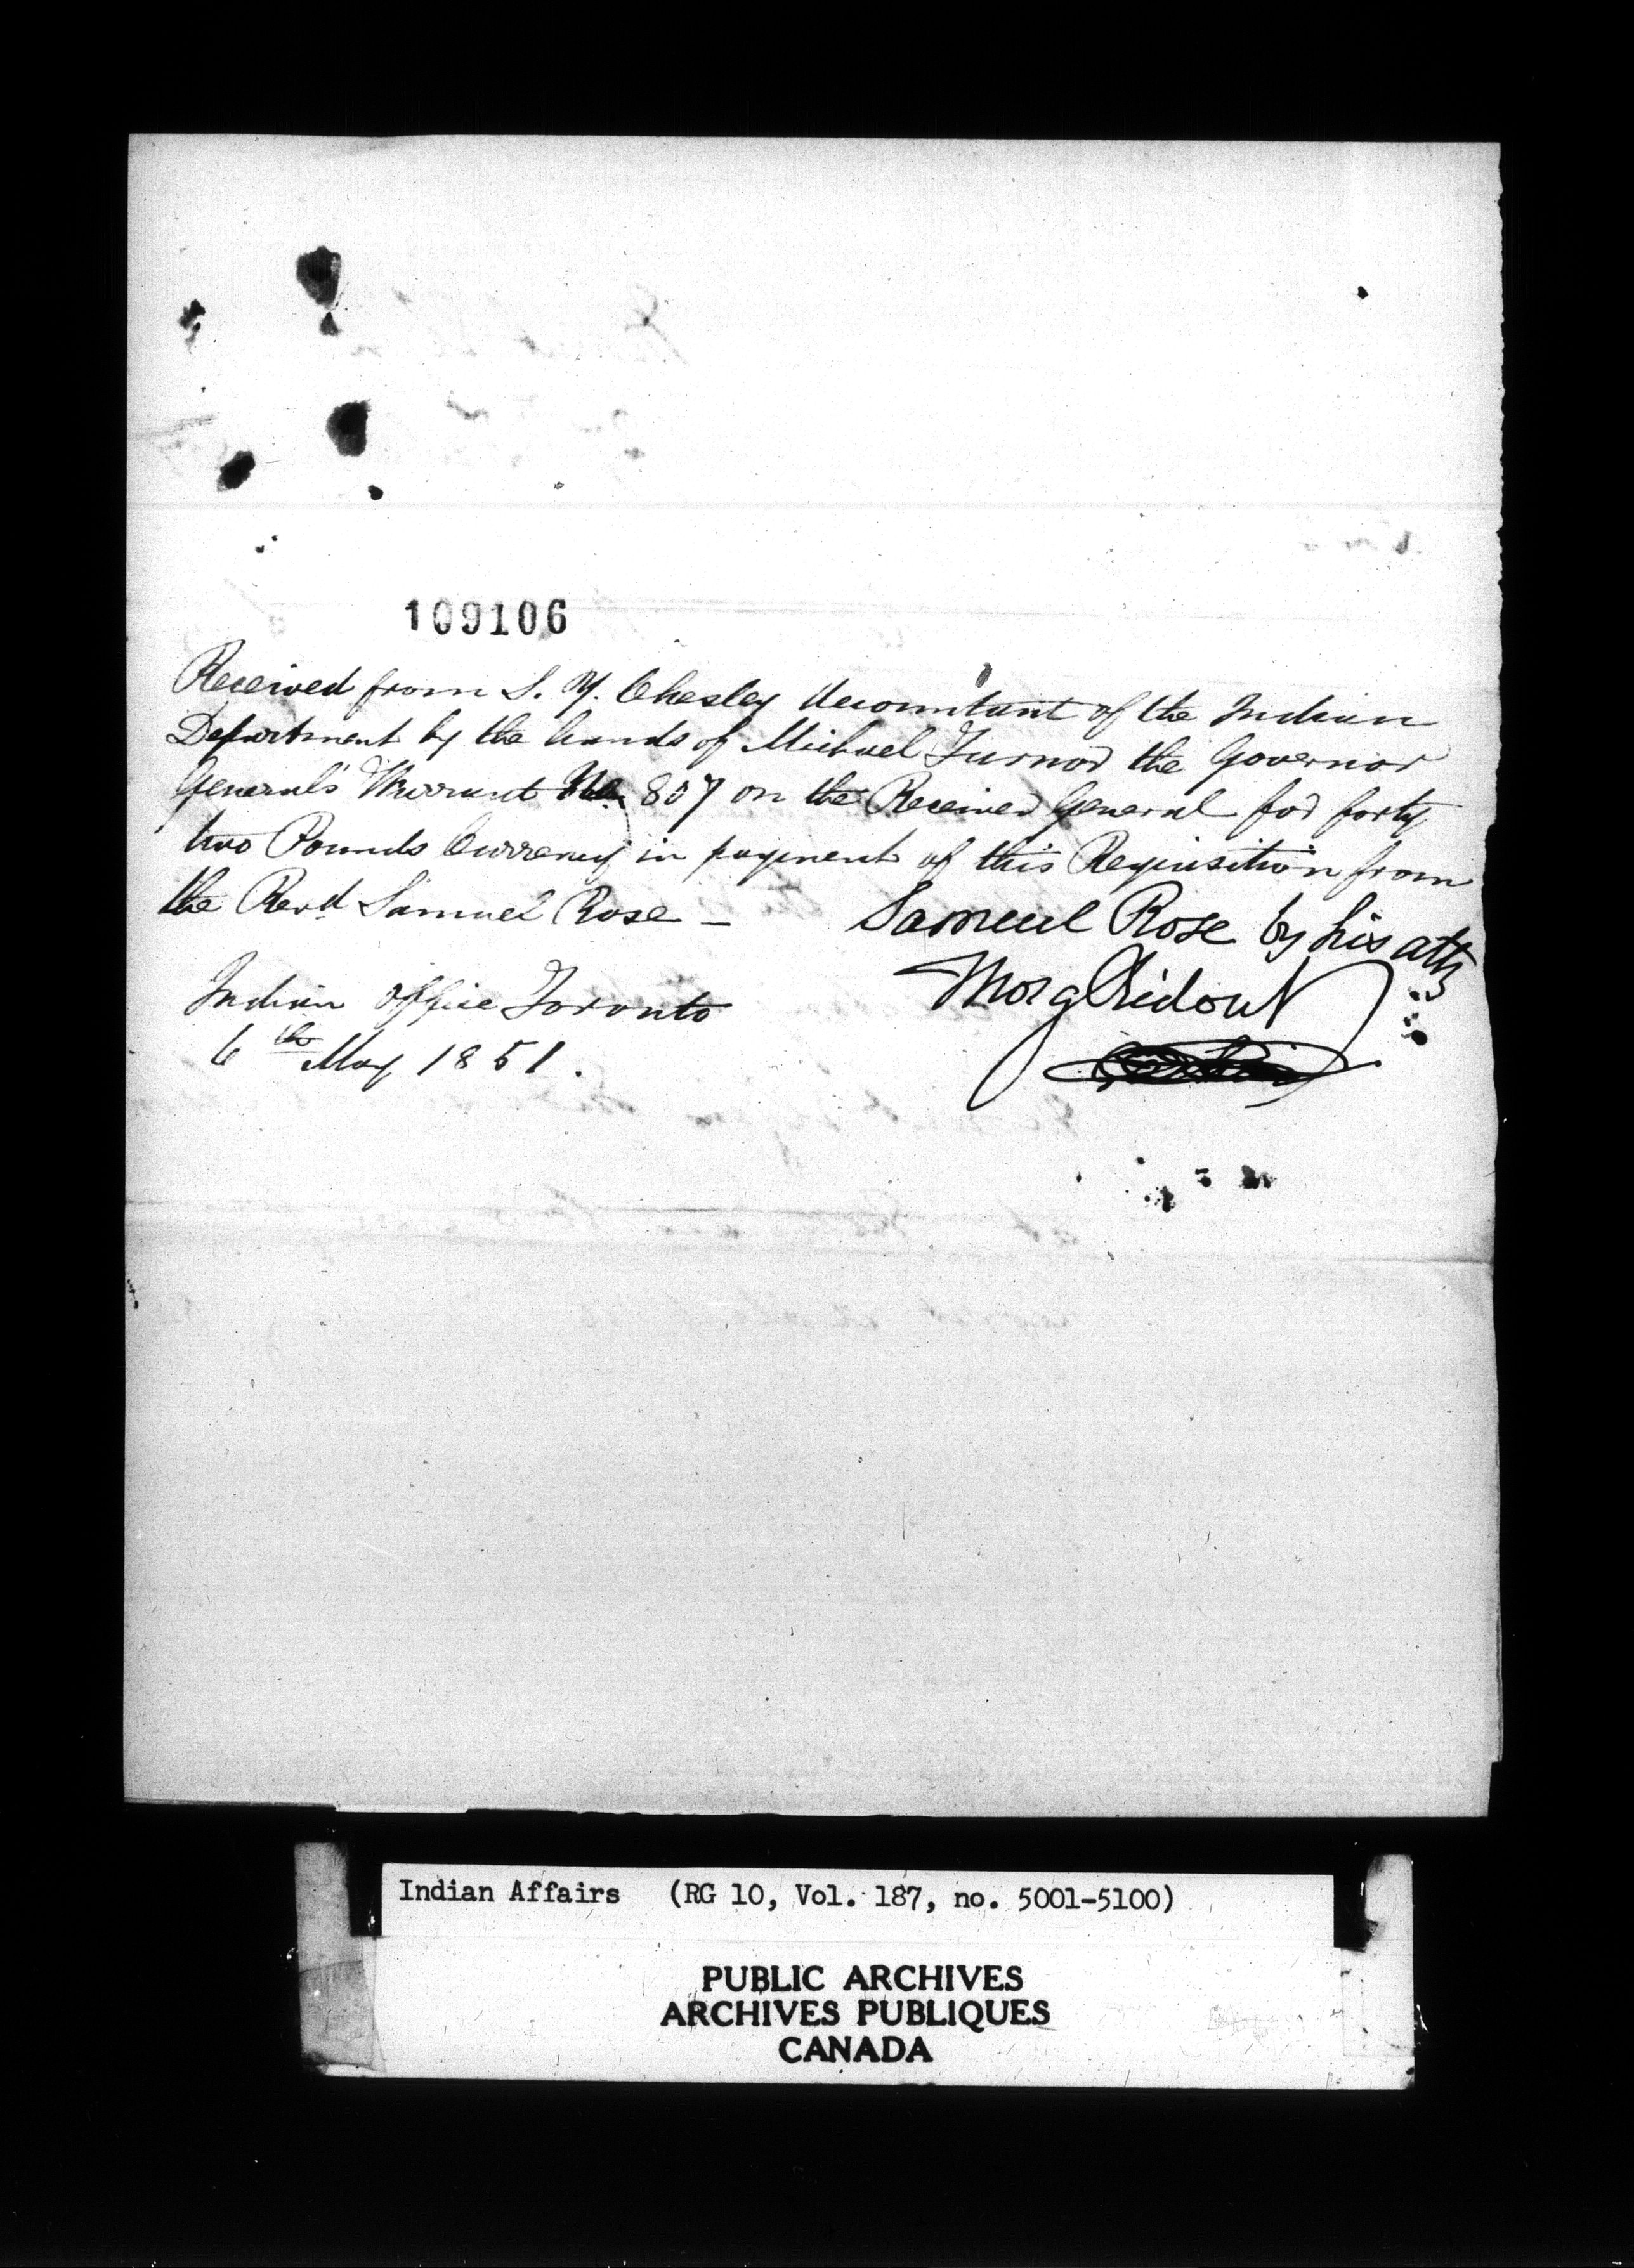 109106
Received from S. Y. Chesley Accountant of the Indian
Department by the hands of Michael Turnor the Governor
General's Warrant No. 857 on the Receiver General for forty
two Pounds Currency in payment of this Requisition from
the Revd Samuel Rose —
Samuel Rose by his atty
Thos g Ridout
Indian Office Toronto
6th May 1851.
Indian Affairs (RG 10, Vol. 187, no. 5001-5100)
PUBLIC ARCHIVES
ARCHIVES PUBLIQUES
CANADA